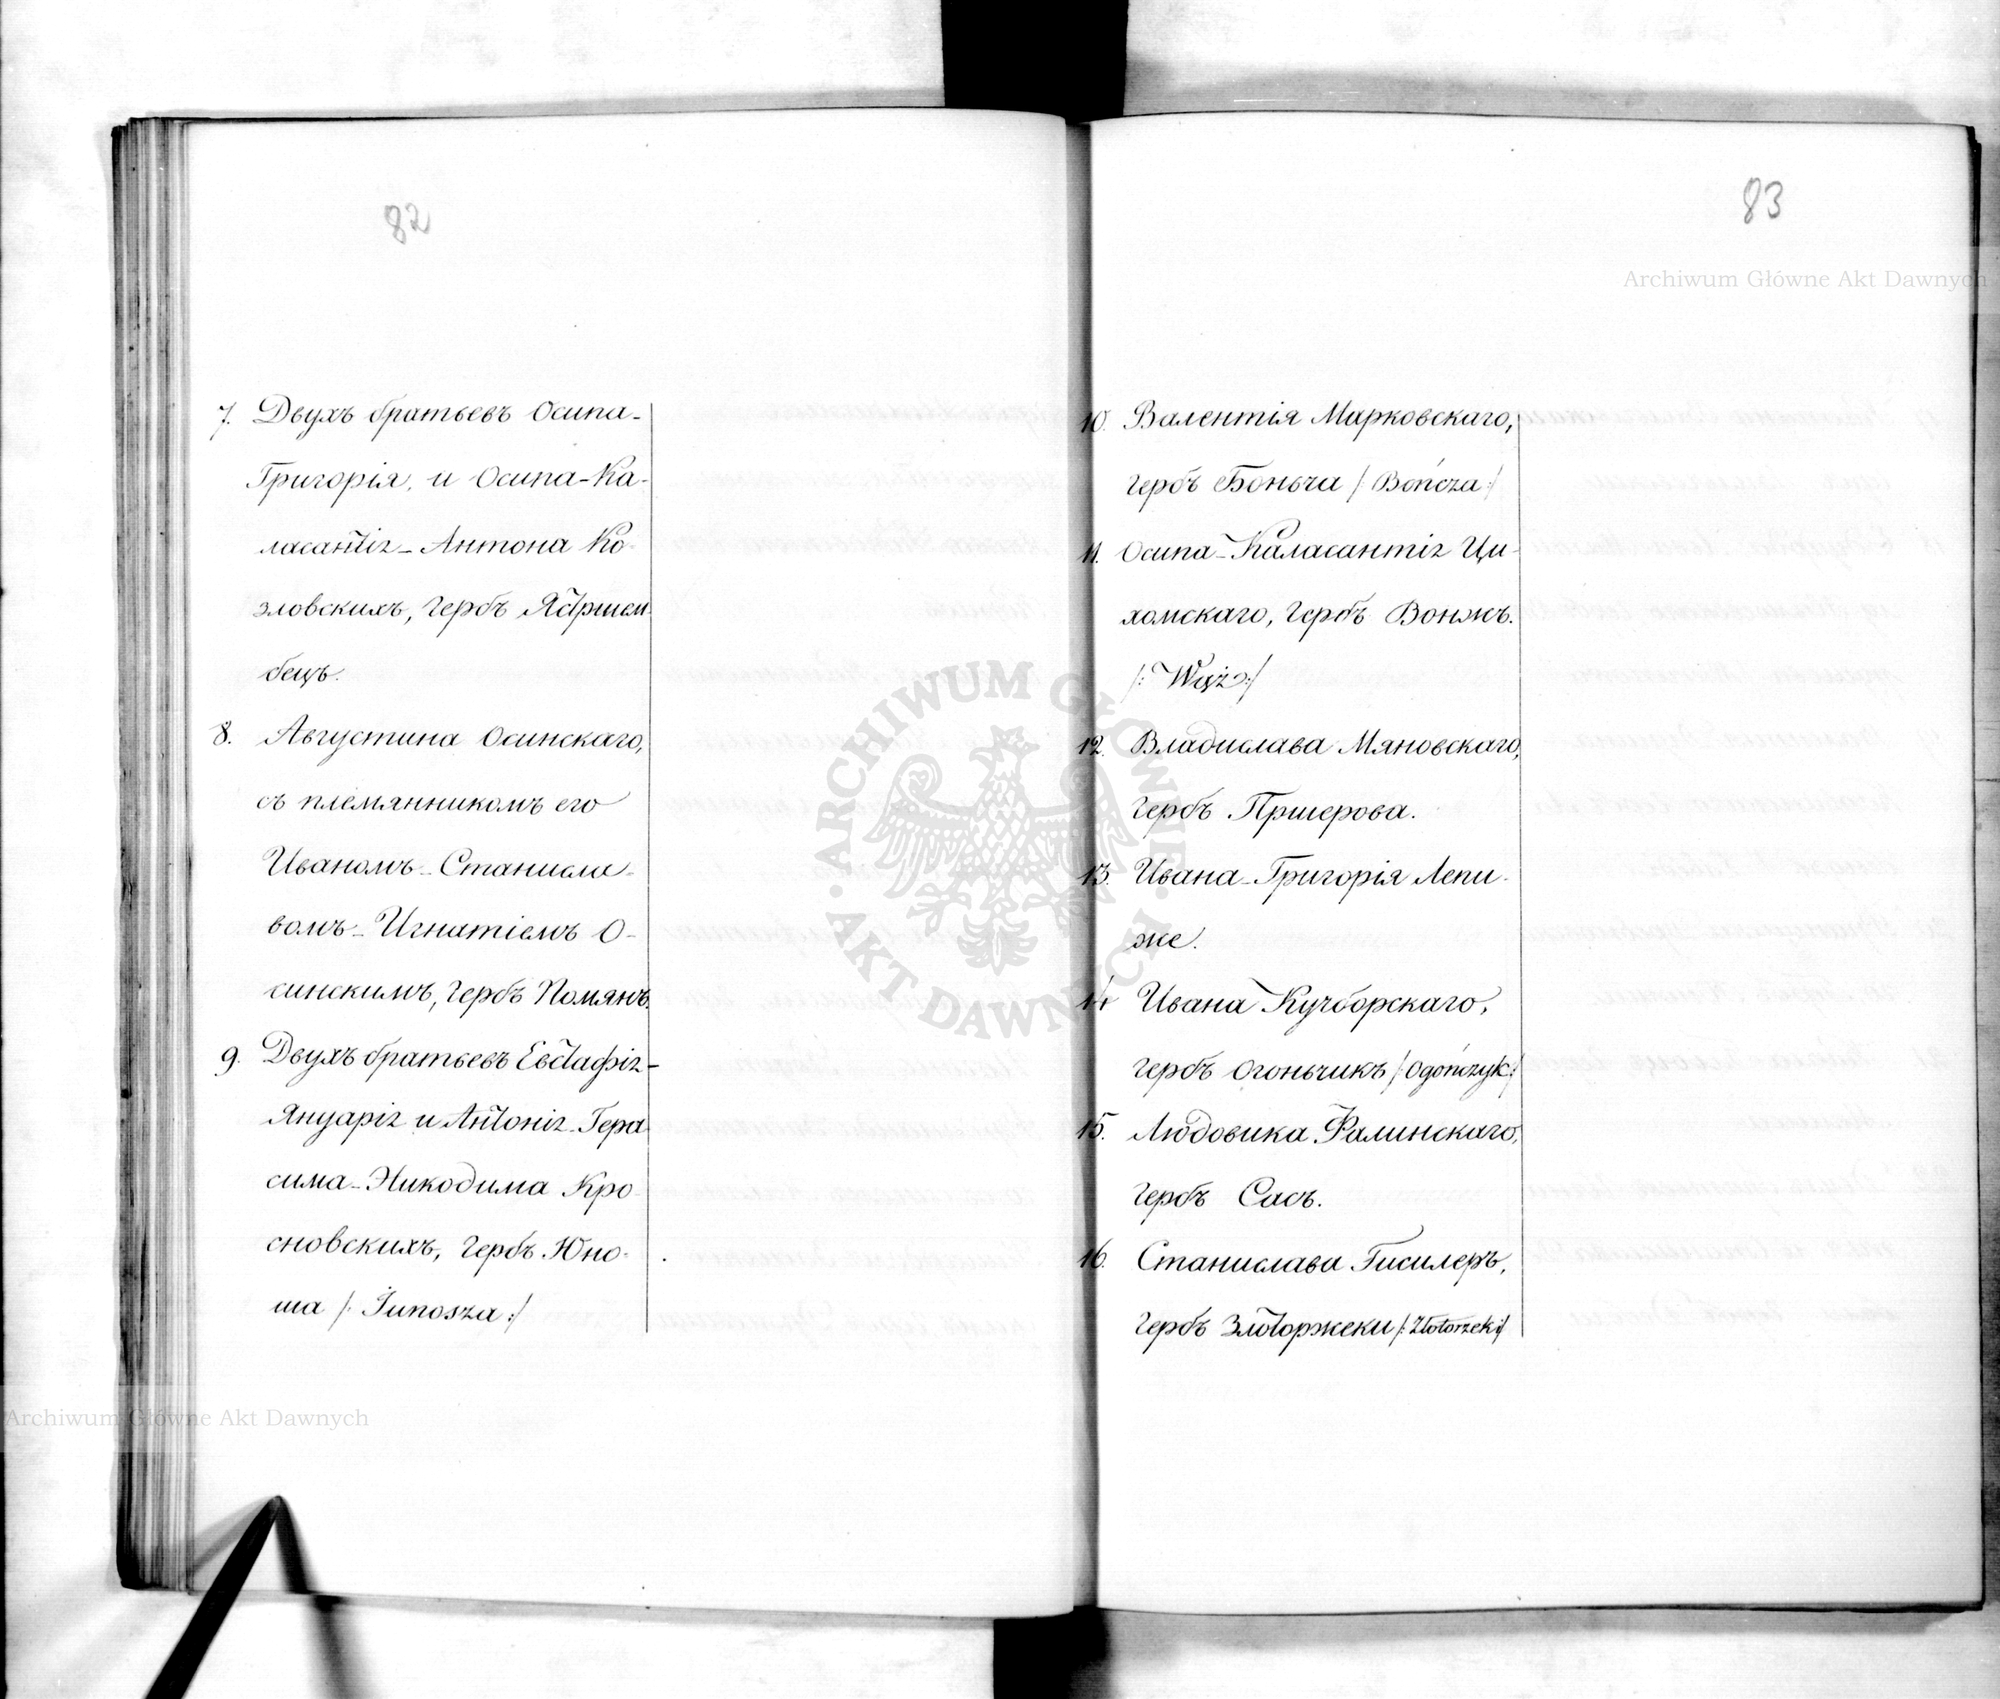 82
7. Двухъ братьевъ Осипа-
Григорія, и Осипа-Ка-
ласантія-Антона Ко-
зловскихъ, гербъ Ястршем-
бецъ.
8. Августина Осинскаго,
съ племянникомъ его
Иваномъ-Станисла-
вомъ-Игнатіемъ О-
синскимъ, гербъ Помянъ.
9. Двухъ братьевъ Евстафія-
Януарія и Антонія-Гера-
сима-Никодима Кро-
сновскихъ, гербъ Юно-
ша /: Junosza :/
83
Archiwum Główne Akt Dawnych
10. Валентія Марковскаго,
гербъ Боньча /: Bończa :/
11. Осипа-Каласантія Ци-
хомскаго, гербъ Вонжъ.
/: Wąż :/
12. Владислава Мяновскаго,
гербъ Пршерова.
13. Ивана-Григорія Лепи-
же.
14 Ивана Кучборскаго,
гербъ Огоньчикъ /: Ogończyk :/
15. Людовика Фалинскаго,
гербъ Сасъ.
16. Станислава Гисилеръ,
гербъ Злоторжеки /: Złotorzeki :/
ARCHIWUM GŁÓWNE
AKT DAWNYCH
Archiwum Główne Akt Dawnych